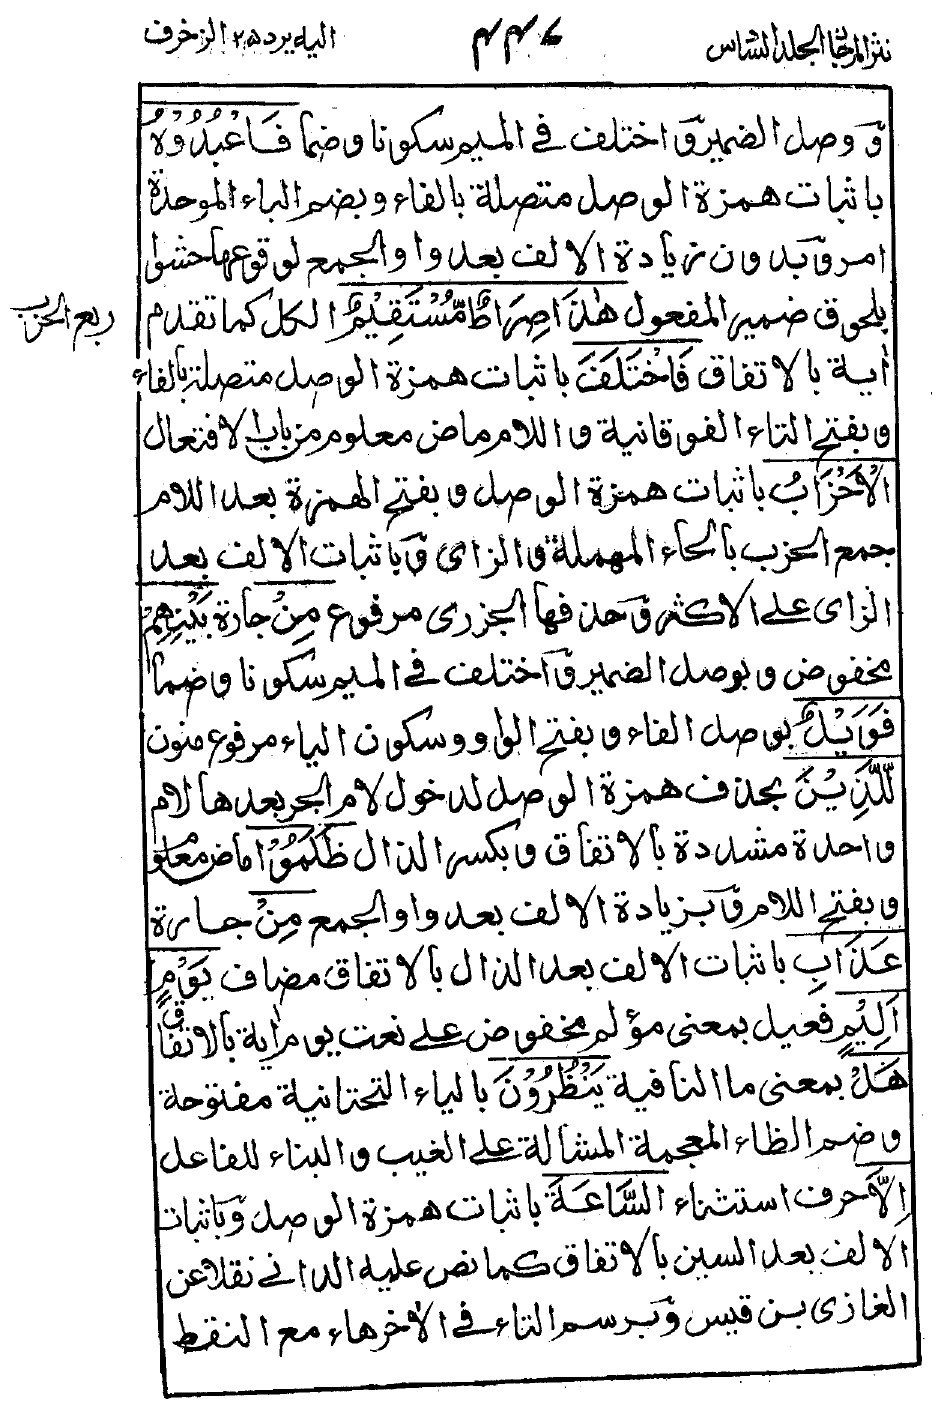 نثر المرجان المجلد السادس ۴۴۷ اليه يرد ۲۵ الزخرف
وّ وصل الضمير وّ اختلف فى الميم سكونا وضما فَاعْبُدُوْهُ
باثبات همزة الوصل متصلة بالفاء وبضم الباء الموحدة
امر وّ بدون زيادة الالف بعد واو الجمع لوقوعها حشوا
بلحوق ضمير المفعول هٰذَا صِرَاطٌ مُّسْتَقِيْمٌ الكل كما تقدم
ربع الحزب
أية بالاتفاق فَاخْتَلَفَ باثبات همزة الوصل متصلة بالفاء
وبفتح التاء الفوقانية واللام ماض معلوم من باب الافتعال
الْاَحْزَابُ باثبات همزة الوصل وبفتح الهمزة بعد اللام
جمع الحزب بالحاء المهملة والزاى وّ باثبات الالف بعد
الزاى على الاكثر وّ حذفها الجزرى مرفوع مِنْ جارة بَيْنِهِمْ
مخفوض وبوصل الضمير وّ اختلف فى الميم سكونا وضما
فَوَيْلٌ بوصل الفاء وبفتح الواو وسكون الياء مرفوع منون
لِّلَّذِيْنَ بحذف همزة الوصل لدخول لام الجر بعدها لام
واحدة مشددة بالاتفاق وبكسر الذال ظَلَمُوْا ماض معلوم
وبفتح اللام وّ بزيادة الالف بعد واو الجمع مِنْ جارة
عَذَابِ باثبات الالف بعد الذال بالاتفاق مضاف يَوْمٍ
اَلِيْمٍ فعيل بمعنى مؤلم مخفوض على نعت يوم أية بالاتفاق
هَلْ بمعنى ما النافية يَنْظُرُوْنَ بالياء التحتانية مفتوحة
وضم الظاء المعجمة المشالة على الغيب والبناء للفاعل
اِلَّا حرف استثناء السَّاعَةَ باثبات همزة الوصل وّ باثبات
الالف بعد السين بالاتفاق كما نص عليه الدانى نقلا عن
الغازى بن قيس وّ برسم التاء فى الأخر هاء مع النقط